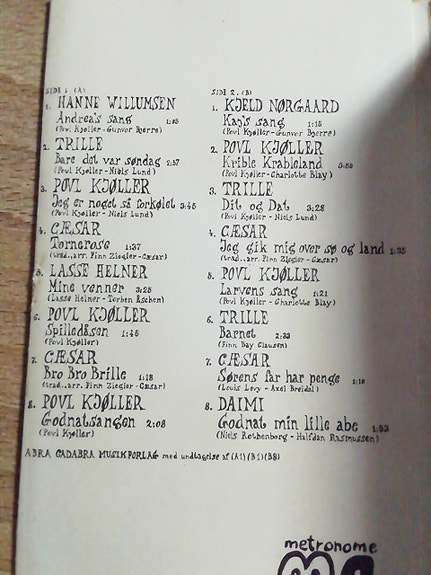 SIDE 1. (A)
1. HANNE WILLUMSEN
Andrea's sang
(Povl Kjøller - Gunvor Bjerre)
2. TRILLE
Bare det var søndag 2:57
(Povl Kjøller - Niels Lund)
3. POVL KJØLLER
Jeg er noget så forkølet 3:45
(Povl Kjøller - Niels Lund)
4. CÆSAR
Tornerose 1:37
(trad., arr. Finn Ziegler - Cæsar)
5. LASSE HELNER
Mine venner 3:25
(Lasse Helner - Torben Eschen)
6. POVL KJØLLER
Spilledåsen 1:45
(Povl Kjøller)
7. CÆSAR
Bro Bro Brille 1:18
(trad., arr. Finn Ziegler - Cæsar)
8. POVL KJØLLER
Godnatsangen 2:08
(Povl Kjøller)
SIDE 2. (B)
1. KJELD NØRGAARD
Kay's sang 1:15
(Povl Kjøller - Gunvor Bjerre)
2. POVL KJØLLER
Krible Krableland
(Povl Kjøller - Charlotte Blay)
3. TRILLE
Dit og Dat 3:28
(Povl Kjøller - Niels Lund)
4. CÆSAR
Jeg gik mig over sø og land
(trad., arr. Finn Ziegler - Cæsar)
5. POVL KJØLLER
Larvens sang 1:21
(Povl Kjøller - Charlotte Blay)
6. TRILLE
Barnet 2:33
(Finn Bay Clausen)
7. CÆSAR
Sørens far har penge 1:10
(Louis Levy - Axel Breidal)
8. DAIMI
Godnat min lille abe 1:53
(Niels Rothenborg - Halfdan Rasmussen)
ABRA CADABRA MUSIKFORLAG med undtagelse af (A1) (B1) (B8)
metronome